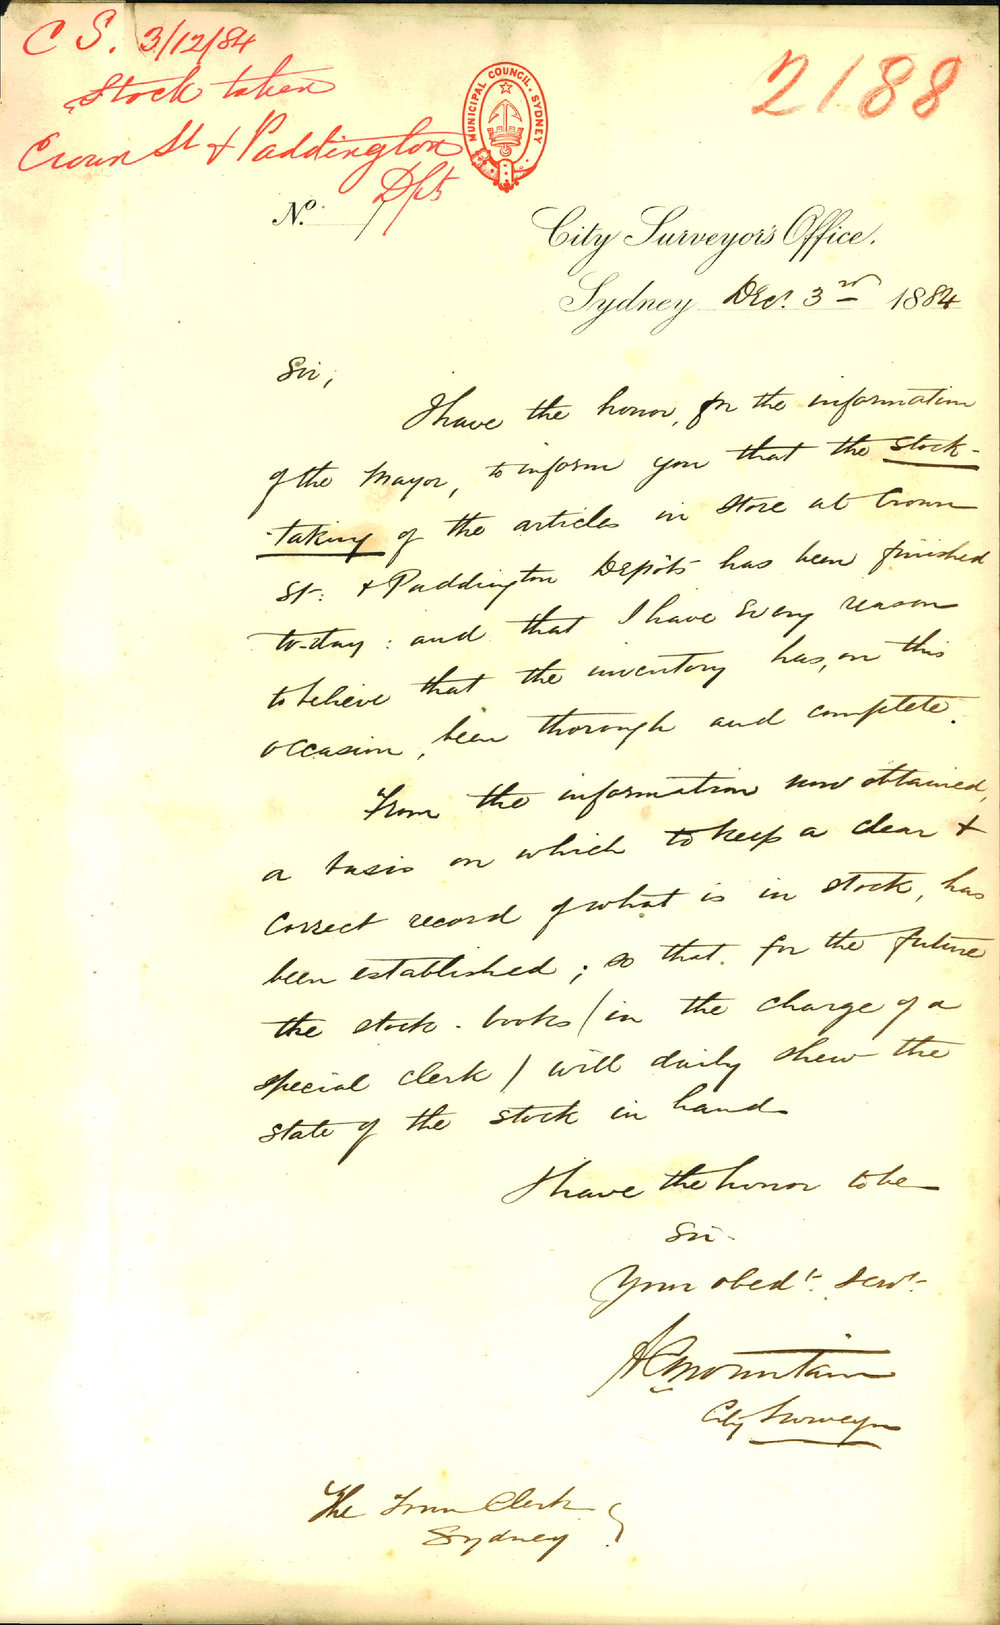 C S. 3/12/84
Stock taken
Crown St & Paddington
Dpts
2188
MUNICIPAL COUNCIL · SYDNEY
No.
City Surveyor's Office.
Sydney Dec. 3rd 1884
Sir,
I have the honor, for the information
of the Mayor, to inform you that the stock-
-taking of the articles in store at Crown
St: & Paddington Depôts has been finished
to-day: and that I have every reason
to believe that the inventory has, on this
occasion, been thorough and complete.
From the information now obtained,
a basis on which to keep a clear &
correct record of what is in stock, has
been established; so that for the future
the stock-books (in the charge of a
special clerk) will daily shew the
state of the stock in hand
I have the honor to be
Sir
Your obedt. Servt.
A C Mountain
City Surveyor
The Town Clerk
Sydney